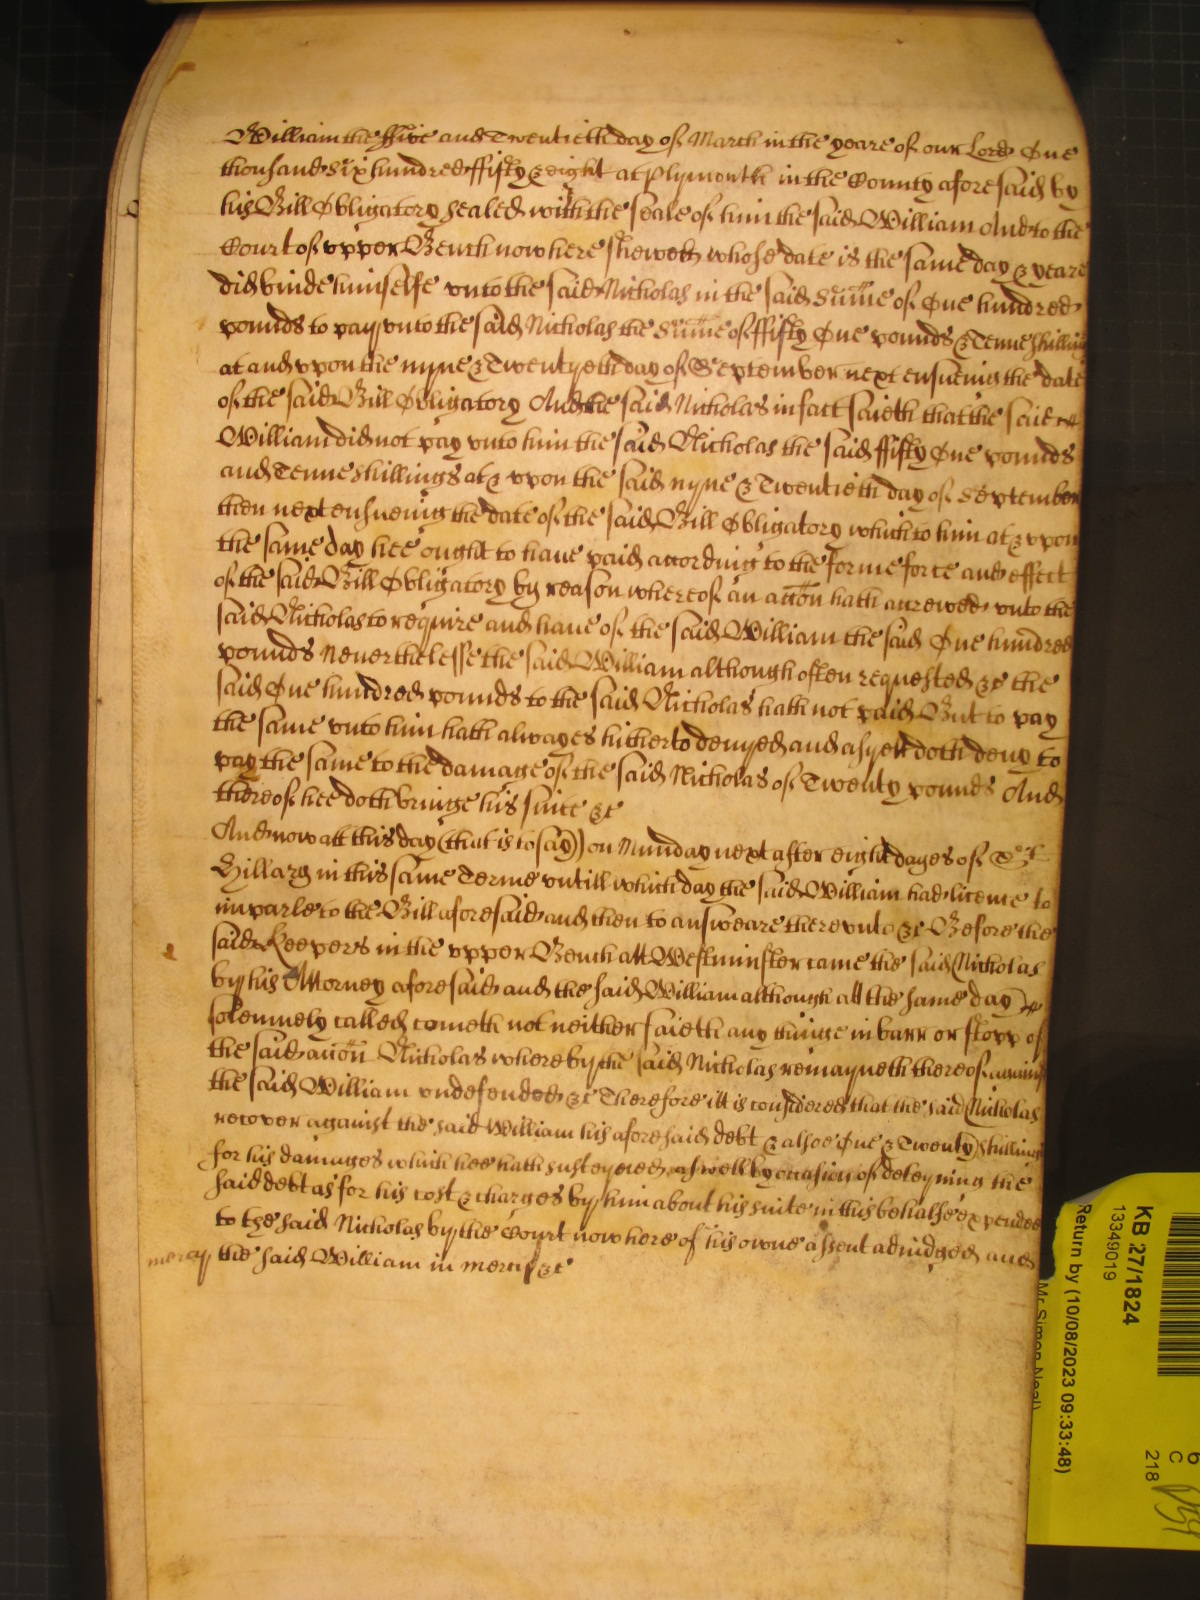 William the ffive and Twentieth day of March in the yeare of our Lord One
thousand Six hundred ffifty & eight at Plymouth in the County aforesaid by
his Bill Obligatory sealed with the seale of him the said William And to the
Court of vpper Bench now here shewed whose date is the same day & yeare
did binde himselfe vnto the said Nicholas in the said Sum̄e of One hundred
pounds to pay vnto the said Nicholas the Sum̄e of ffifty One pounds & Tenne shillings
at and vpon the nyne & Twentyeth day of September next ensueing the date
of the said Bill Obligatory And the said Nicholas in fact saieth that the said
William did not pay vnto him the said Nicholas the said ffifty One pounds
and Tenne shillings at & vpon the said nyne & Twentieth day of September
then next ensueing the date of the said Bill Obligatory which to him at & vpon
the same day hee ought to haue paid according to the forme force and effect
of the said Bill Obligatory by reason whereof an acc̄on hath accrewed vnto the
said Nicholas to require and haue of the said William the said One hundred
pounds Neuerthelesse the said William although often requested &c the
said One hundred pounds to the said Nicholas hath not paid But to pay
the same vnto him hath alwayes hitherto denyed and as yett doth deny to
pay the same to the damage of the said Nicholas of Twenty pounds And
thereof hee doth bringe his suite &c
And now att this day (that is to say) on Munday next after eight dayes of St
Hillary in this same Terme vntill which day the said William had licence to
imparle to the Bill aforesaid and then to answeare therevnto &c Before the
said Keepers in the vpper Bench att Westminster came the said Nicholas
by his Attorney aforesaid and the said William although att the same day
solemnely called cometh not neither saieth any thinge in barr or stopp of
the said acc̄on Nicholas whereby the said Nicholas remayneth thereof against
the said William vndefended &c Therefore itt is considered that the said Nicholas
recover against the said William his aforesaid debt & alsoe One & Twenty shillings
for his damages which hee hath susteyned aswell by occasion of deteyning the
said debt as for his cost & charges by him about his suite in this behalfe expended
to the said Nicholas by the Court now here of his owne assent adiudged and
mercy the said William in mercy &c
KB 27/1824
13349019
Return by (10/08/2023 09:33:48)
Mr Simon Neal)
6
C
218